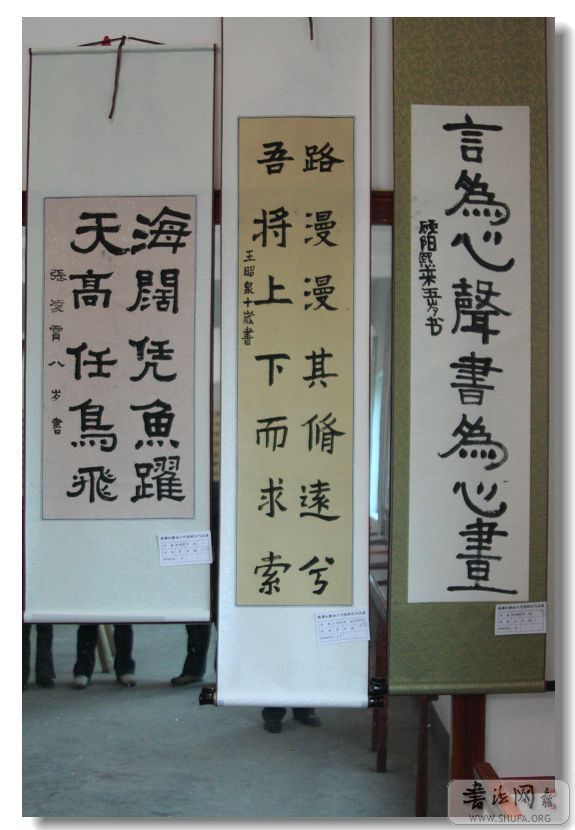 海闊凭魚躍
天高任鳥飛
張凌霄八岁書
路漫漫其脩遠兮
吾將上下而求索
王昭泉十歲書
言為心聲書為心畫
书法网
WWW.SHUFA.ORG